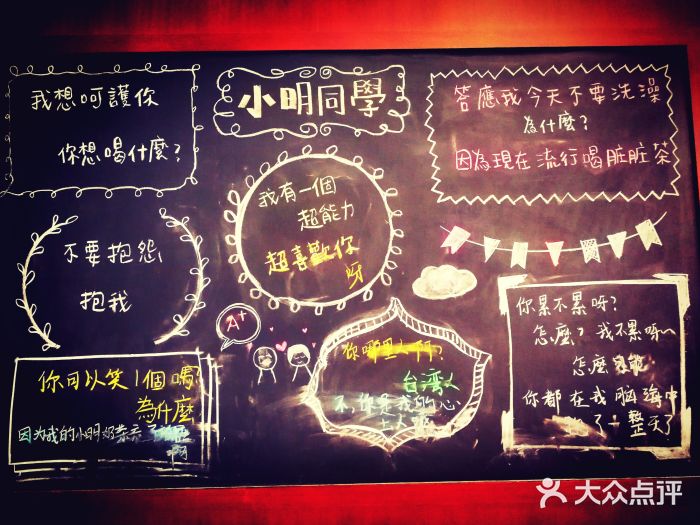 小明同學
我想呵護你
你想喝什麼?
答應我今天不要洗澡
為什麼?
因為現在流行喝脏脏茶
我有一個
超能力
超喜歡你
呀
不要抱怨,
抱我
A+
你累不累呀?
怎麼?我不累呀~
怎麼
你都在我腦海中
了一整天了
你哪里人啊?
台湾人
不,你是我的心
上人
你可以笑1個嗎?
為什麼
因为我的小明奶茶
啊
大众点评